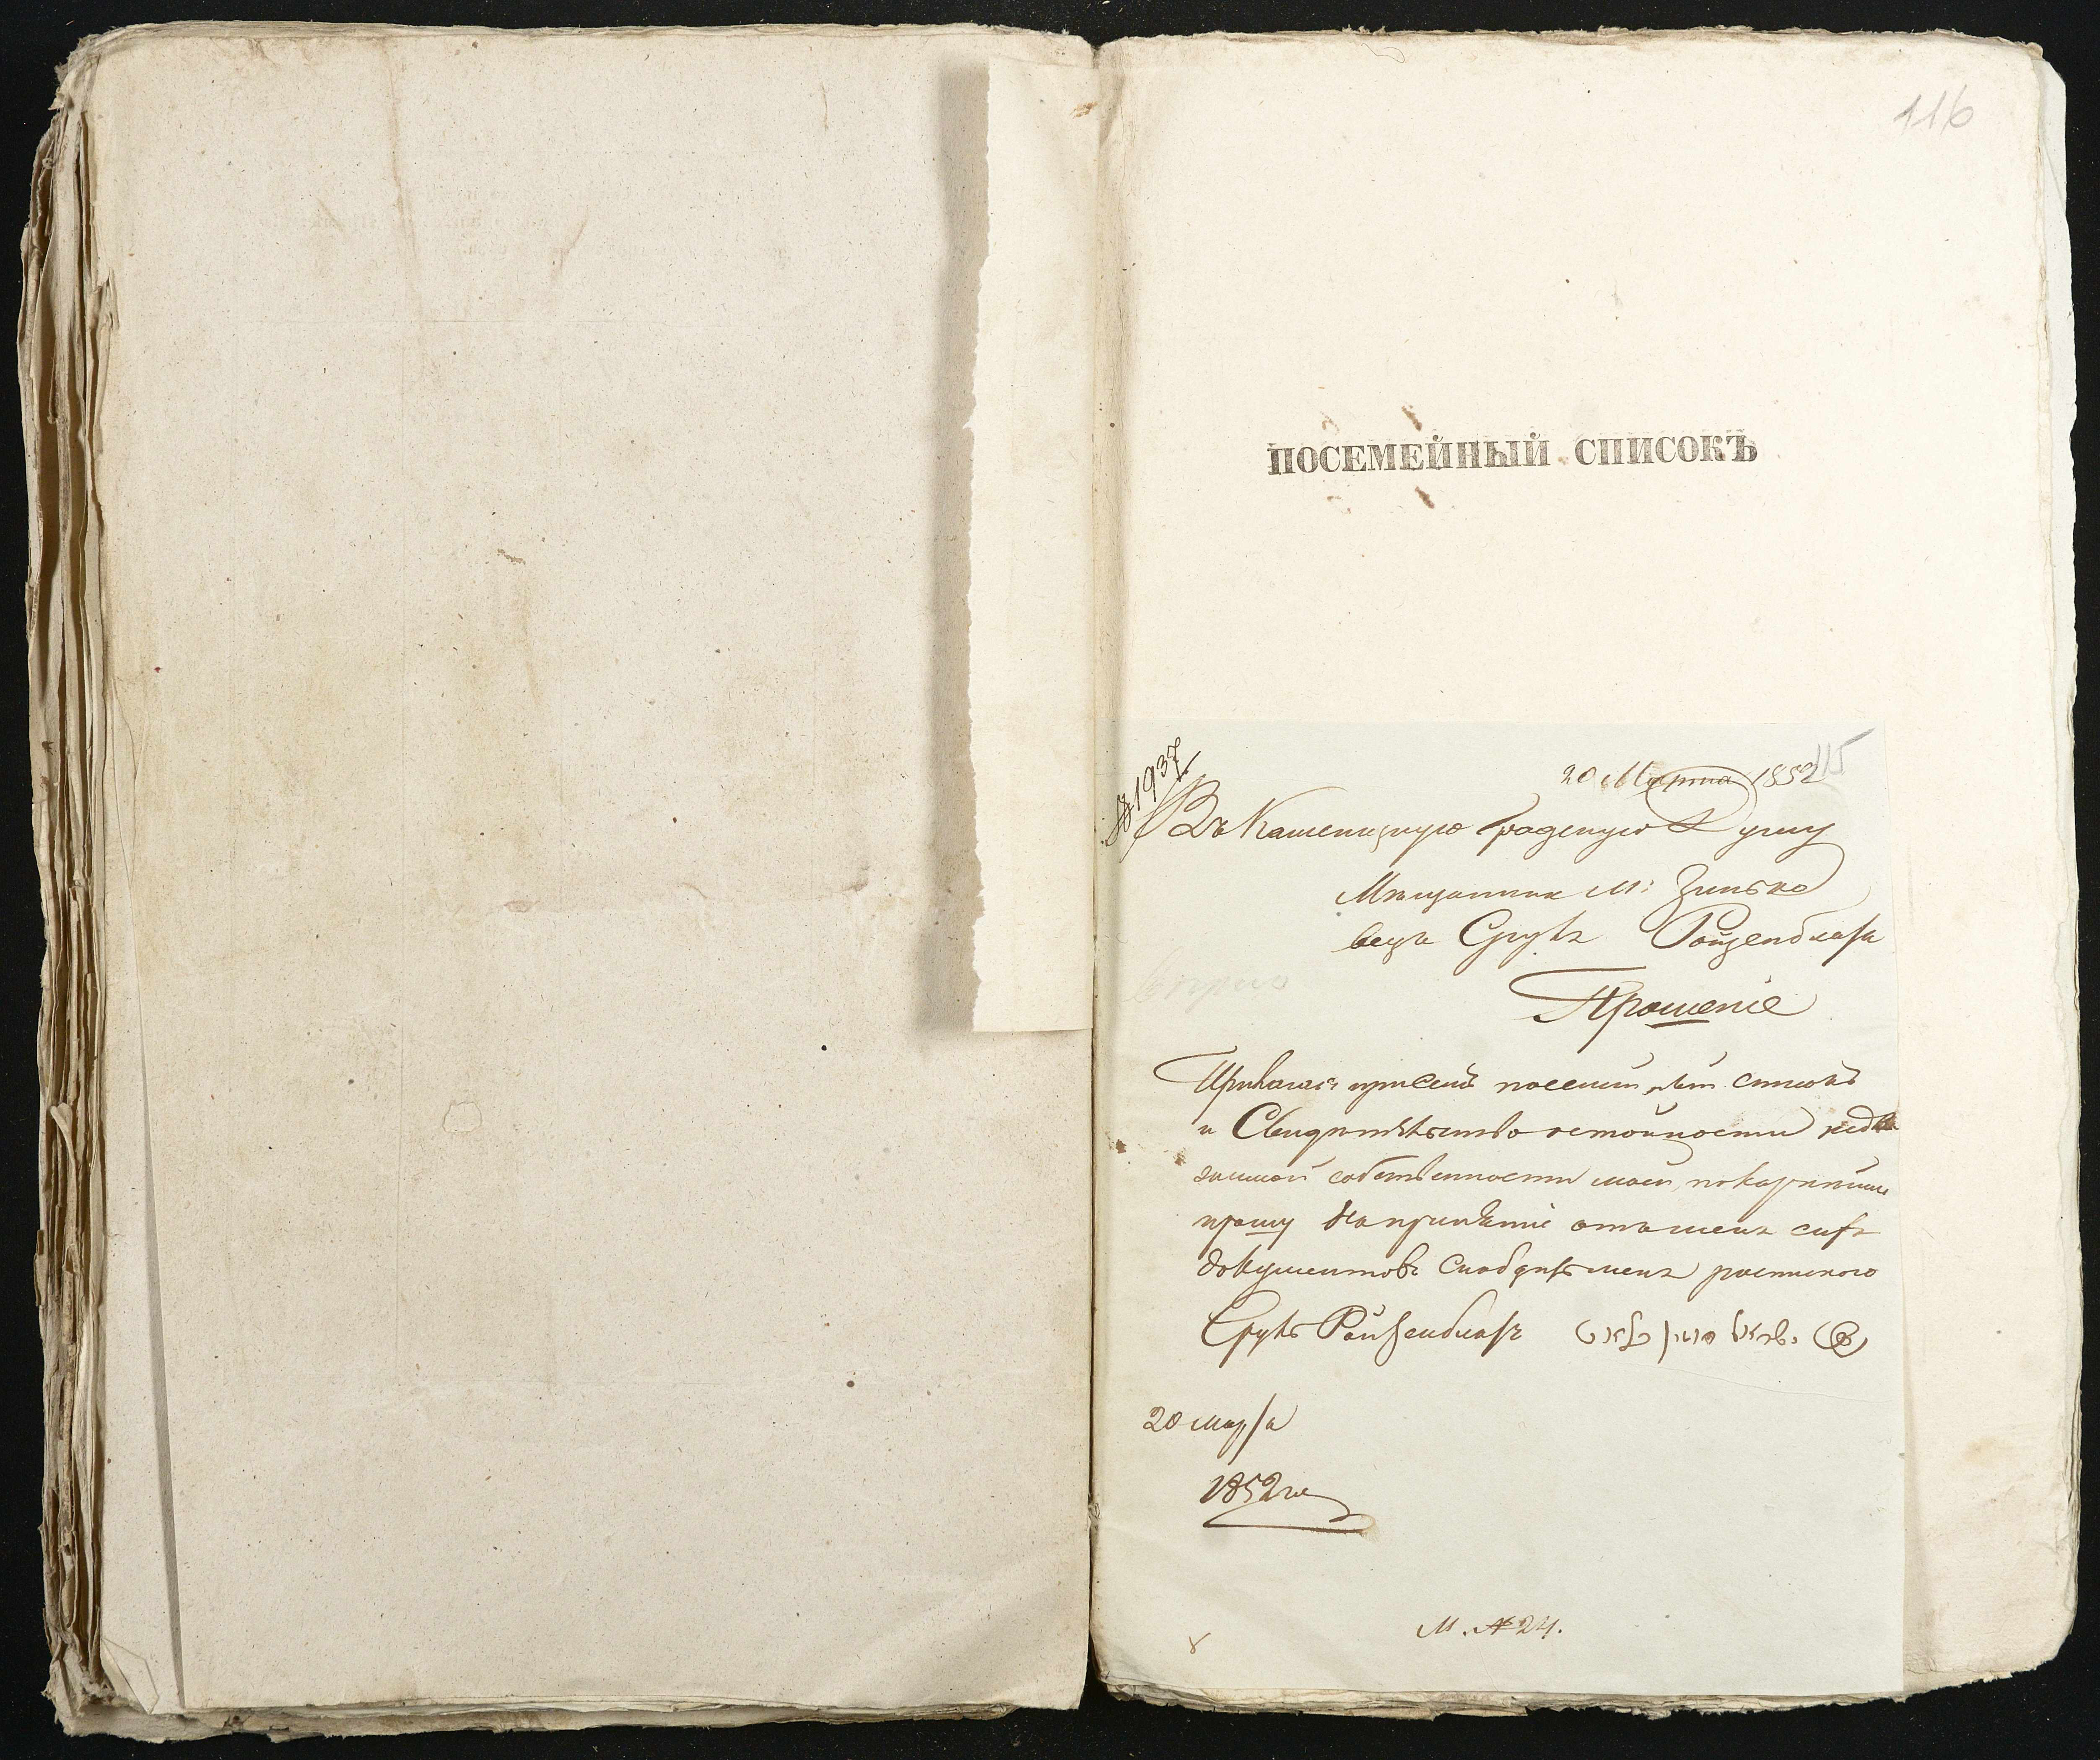 116
ПОСЕМЕЙНЫЙ СПИСОКЪ
115
20 Марта 1852
№ 1937
Въ Каменецкую Градскую Думу
Мещанина М: Зинько
вецъ Сруль Ройзенблата
Прошеніе
Прилагая при семъ посемейный списокъ
и Свидетельство о стоимости недви
жимой собственности моей, покорнейше
прошу по принятіи отъ меня сихъ
документовъ Снабдить меня роспискою
Сруль Ройзенблатъ
20 Марта
1852 го
М. № 24.